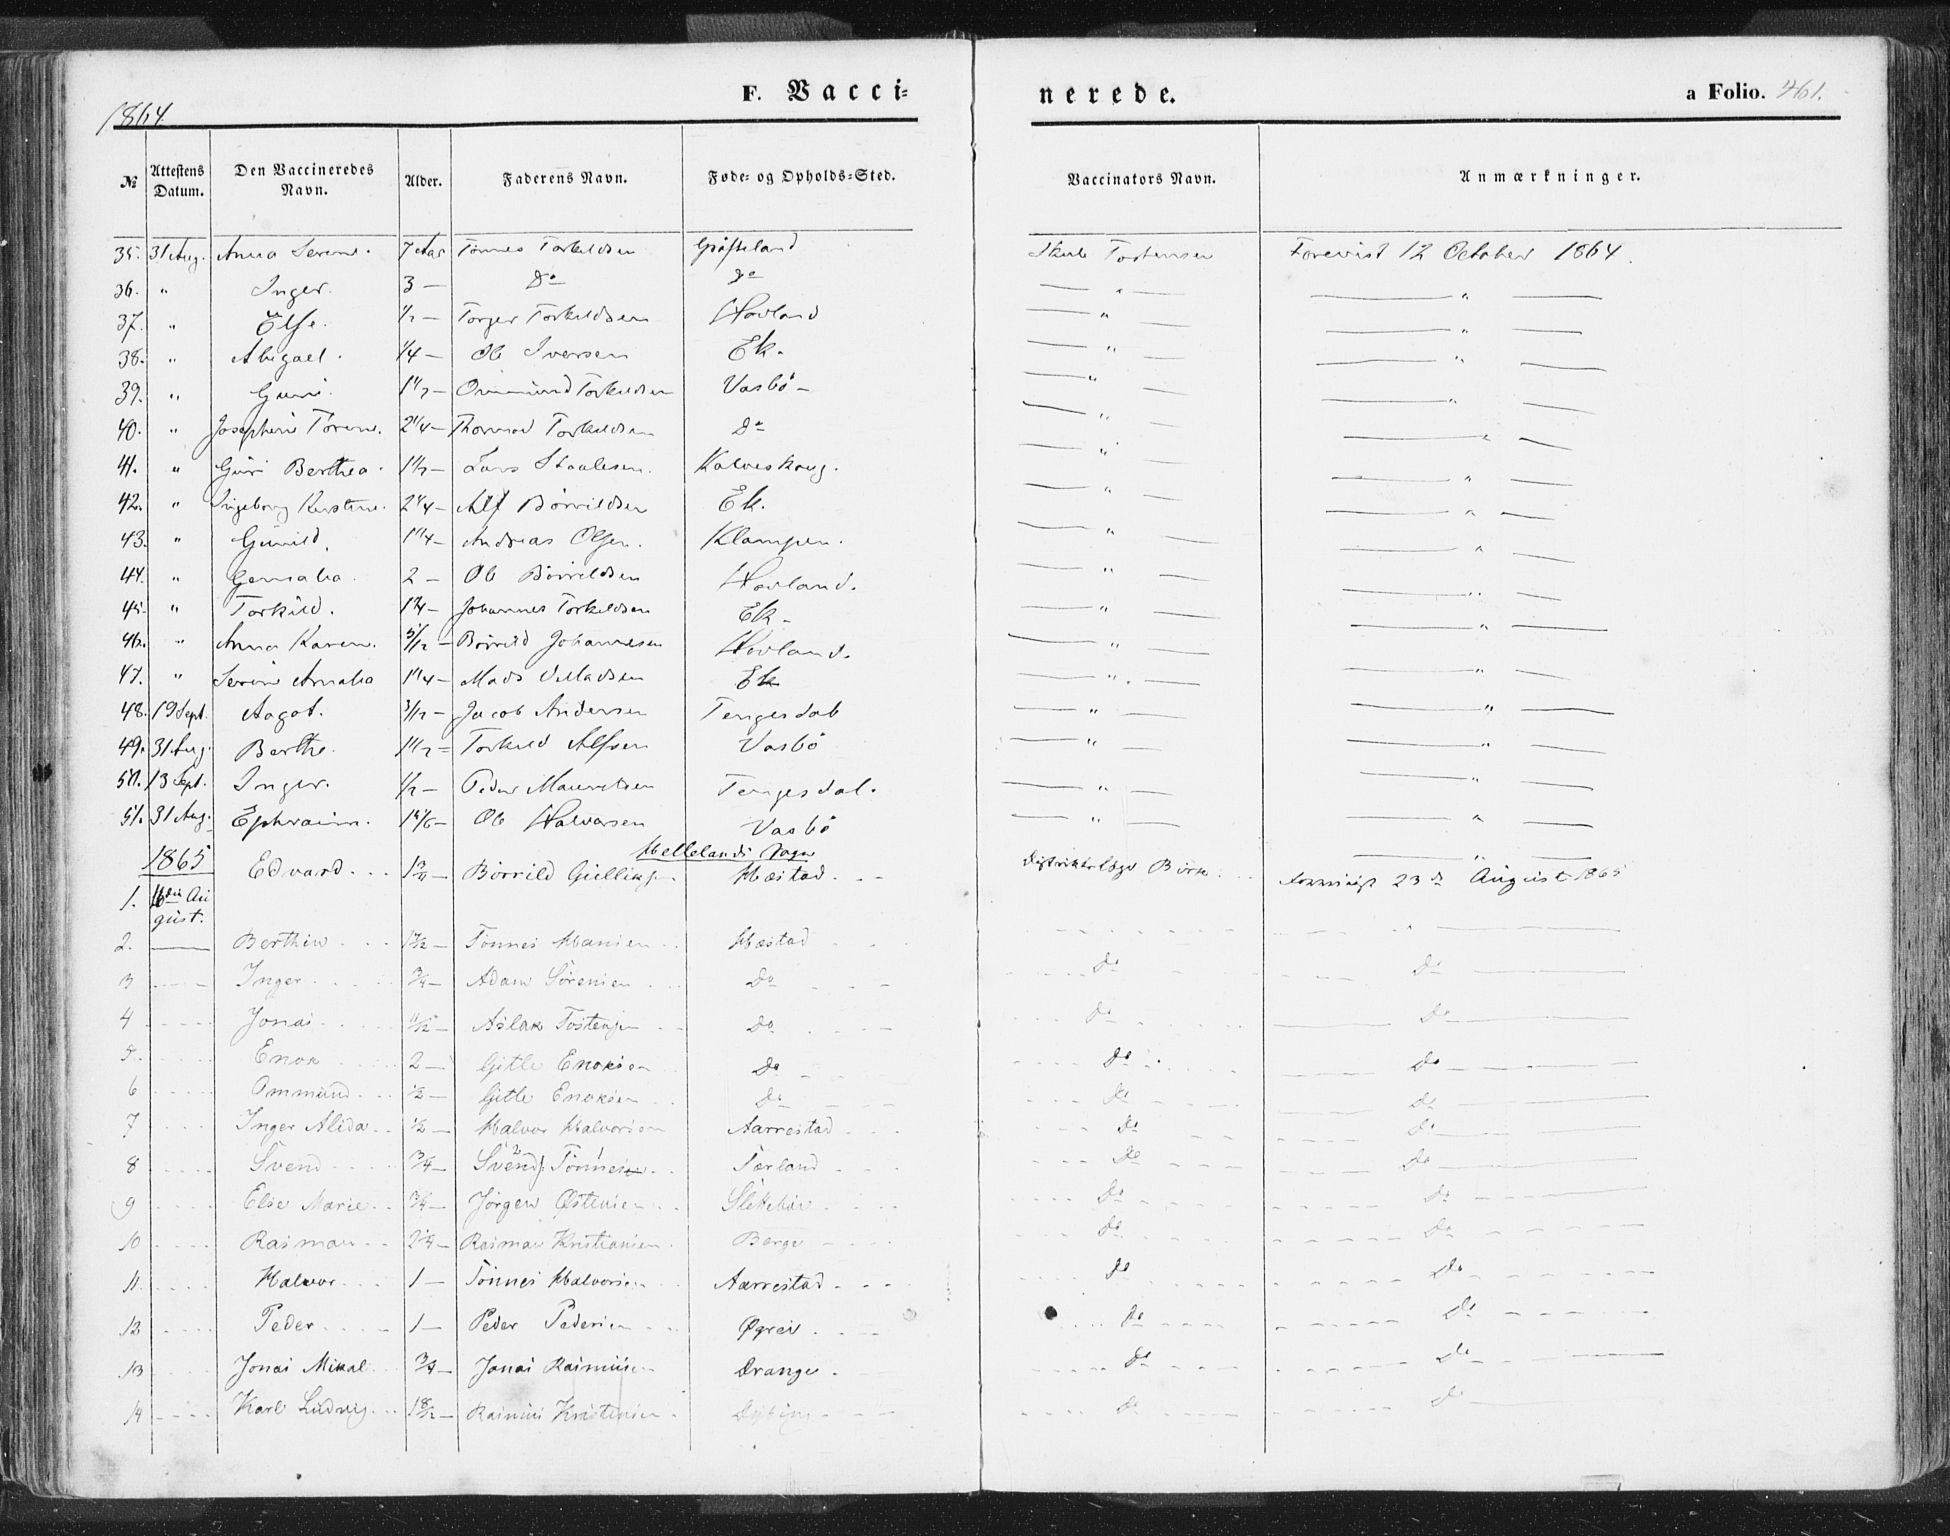 1864
F. Vacci-
nerede.
a Folio. 461.
№ Attestens Datum. Den Vaccineredes Navn. Alder. Faderens Navn. Føde- og Opholds-Sted. Vaccinators Navn. Anmærkninger.
35. 31 Aug. Anna Serine. 7 Aar Tønnes Torkildsen Forevist 12 October 1864.
36. " Inger. 3 — Do Do — " — — " —
37. " Else. 1/2 — Torger Torkildsen Hovland — " — — " —
38. " Abigael. 1/4 — Ole Iversen Ek. — " — — " —
39. " Guri. 1 1/2 — Ommund Torkildsen Vasbö — — " — — " —
40. " Josephine Tørine. 2 1/4 — Thormod Torkildsen Do — " — — " —
41. " Guri Berthea. 1 1/2 — Lars Staalesen. Kalveskaug. — " — — " —
42. " Ingeborg Kirstine. 2 1/4 — Alf Børrildsen Ek. — " — — " —
43. " Gunild. 1 1/4 — Andreas Olsen. Klampen. — " — — " —
44. " 2 — Ole Børrildsen Hovland. — " — — " —
45. " Torkild. 1 3/4 — Johannes Torkildsen Ek — — " — — " —
46. " Anna Karen. 5/12 — Børrild Johannesen Hovland. — " — — " —
47. " Serine Amalia 1 1/4 — Mads Villadsen Ek — " — — " —
48. 19 Sept. Aagot. 3/12 — Jacob Andersen Tengesdal — " — — " —
49. 31 Aug. Berthe. 1 1/2 — Torkild Alfsen Vasbö — " — — " —
50. 13 Sept. Inger. 1/2 — Peder Mauritsen Tengesdal. — " — — " —
51. 31 Aug. Ephraim. 1 1/6 — Ole Halvorsen Vasbö — " — — " —
1865 Hellelands Sogn — " —
1. 16de August. Edvard. Børrild Gulliksen Hæstad. Distriktslæge Birk. 23de August 1865
2. — Berthin 1 1/2 — Tønnes Hansen Hæstad - " -
3 - Inger 3/4 — Adam Sörensen Do Do Do
4 - Jonas 11/12 — Aslak Tostensen Do Do Do
5. - Enok 2 — Gitle Enoksen Do Do Do
6 - Ommund 1/2 — Gitle Enoksen Do Do Do
7 - Inger Alida 1/2 — Halvor Halvorsen Aarrestad Do Do
8 - Svend 3/4 — Svend Tönnesen Terland Do Do
9 - Else Marie 3/4 — Jörgen Østensen Slettebøe Do Do
10 - Rasmus 2 1/4 — Rasmus Kristiansen Berge Do Do
11. - Halvor 1 — Tönnes Halvorsen Aarrestad Do Do
12 - Peder 1 — Peder Pedersen Øgreid Do Do
13 - Jonas Mikal 3/4 — Jonas Rasmussen Drange Do Do
14 - Karl Ludvig 1 8/12 — Rasmus Kristensen Dybing Do Do